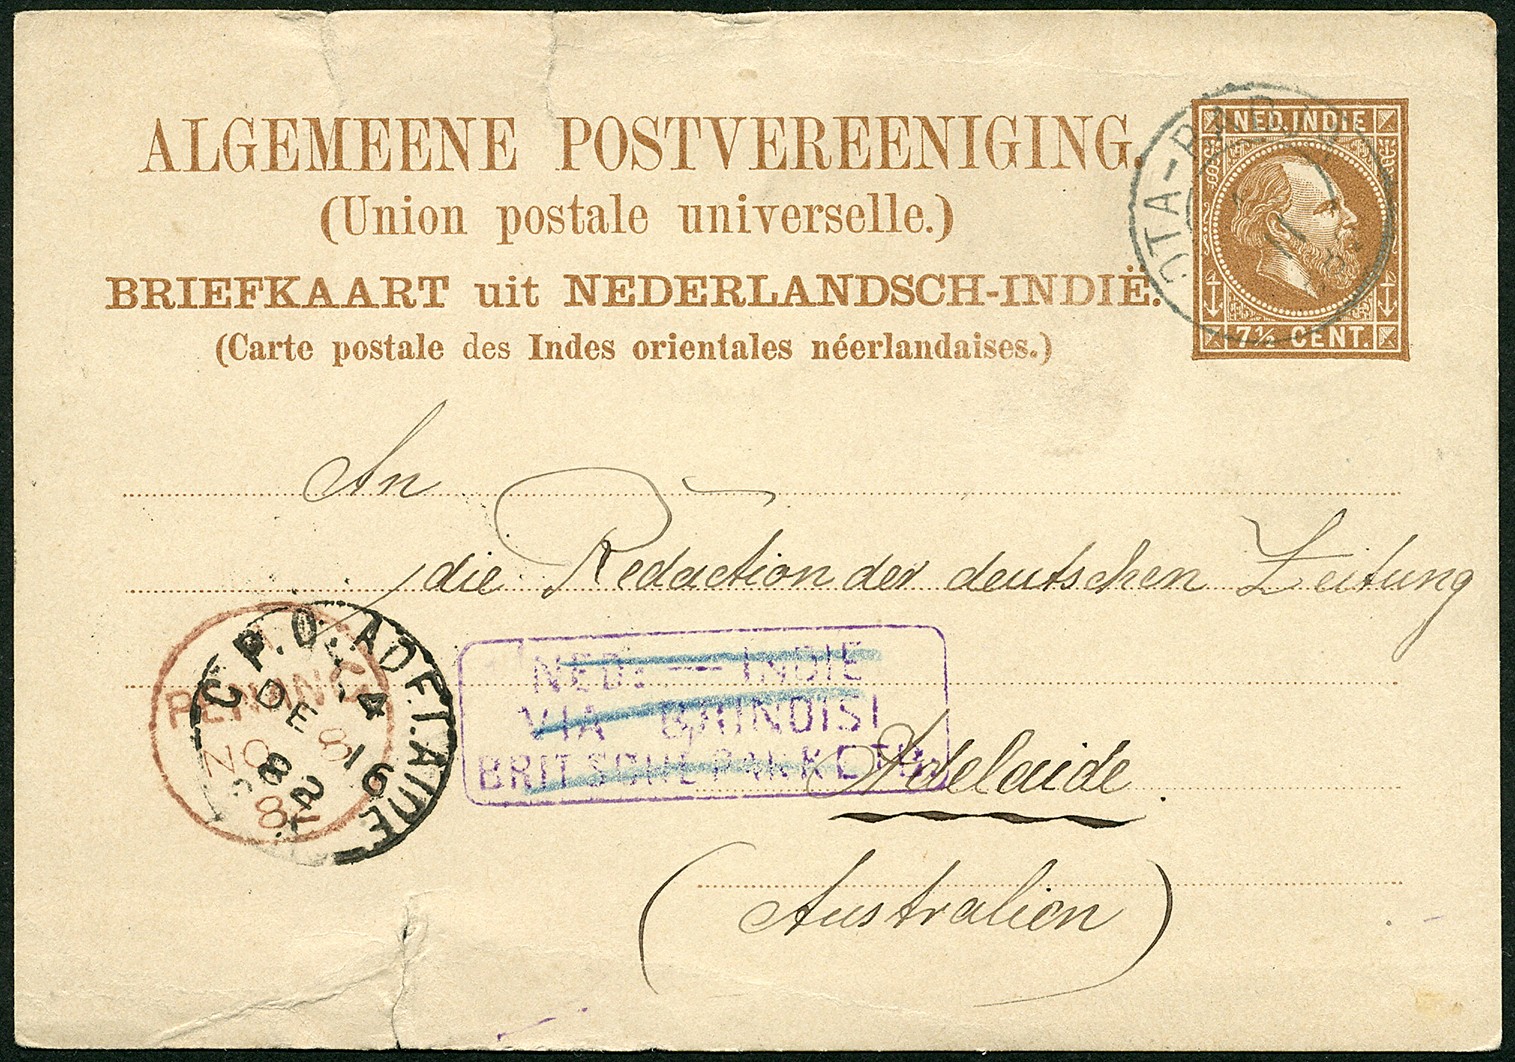 ALGEMEENE POSTVEREENIGING.
(Union postale universelle.)
BRIEFKAART uit NEDERLANDSCH-INDIË.
(Carte postale des Indes orientales néerlandaises.)
NED. INDIE
7½ CENT.
An
die Redaction der deutschen Zeitung
Adelaide.
(Australien)
NED: — INDIE
VIA BRINDISI
G.P.O. ADELAIDE
DE 16
82
PENANG
NO 8